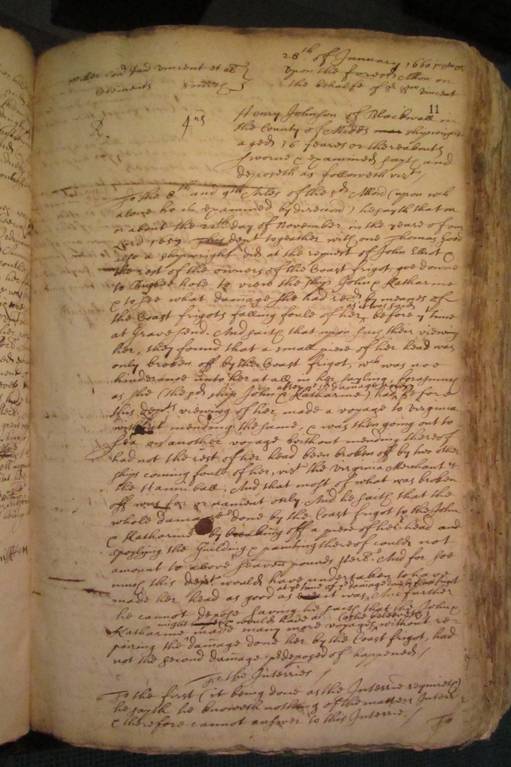 28th of January 1660
upon the foresd Allon on
the behalfe of sd Vincent
11
4us
Henry Johnson of Blackwall in
the County of Midds shipwright
aged 36 yeares or thereabouts
sworne & examined sayth and
deposeth as followeth vizt
To the 8th and 9th Arles of the sd Allon (upon wch
alone he is examined by direccon) he sayth that on
or about the day of November in the yeare of our
Lord 1659 dept together with one Thomas
also a shipwright did at the request of John Elliot &
the rest of the owners of the Coast frigot, goe downe
to hole to view the ship John & Katharine
& to see what damage she had by meanes of
the Coast frigots falling foule of her, before yt time
at Gravesend. And saith that upon their viewing
her, they found that a small piece of her head was
only broken off by the Coast frigot, wch was noe
hinderance unto her at all in her sayling
as the sd ship John & Katharine, had before
this depts viewing of her, made a voyage to Virginia
without mending the same, & was then going out to
Sea on another voyage without mending thereof
had not the rest of her head been broken off by two other
ships coming foule of her, vizt the Virginia Merchant &
the Hanniball, And that most of what was broken
off was for ornament only And he saith that the
whole damage done by the Coast frigot to the John
& Katharine by breaking off a piece of her head and
spoyling the Guilding & painting thereof could not
amount to above seaven pounds sterl And for soe
much this dept would have undertaken to have
made her head as good as it was, And further
he cannot depose saving he saith that the John &
Katharine might have made many more voyages without re-
pairing the damage done her by the Coast frigot, had
not the second damage predeposed of happened
To the Interries
To the first (it being done as the Interrie requireth)
he sayth he knoweth nothing of the matters Interr
& therefore cannot answer to this Interrie.
To